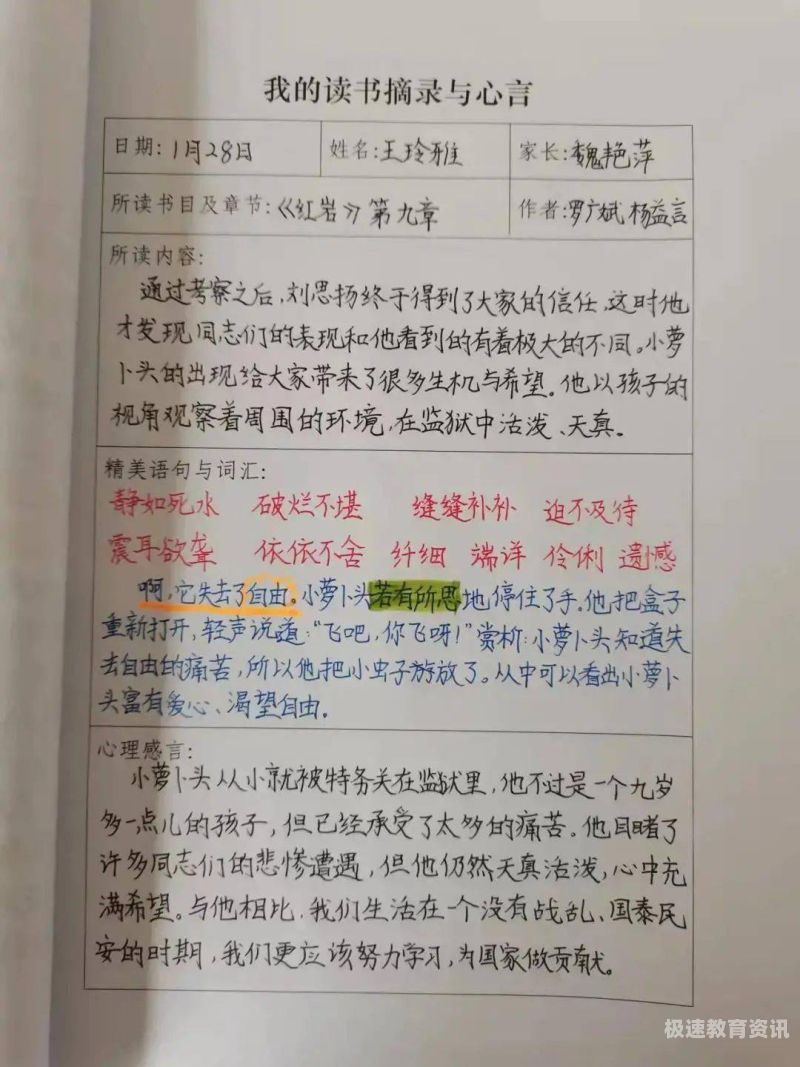 我的读书摘录与心言
日期:1月28日 姓名:王玲雅 家长:魏艳萍
所读书目及章节:《红岩》第九章 作者:罗广斌 杨益言
所读内容:
通过考察之后,刘思扬终于得到了大家的信任,这时他
才发现同志们的表现和他看到的有着极大的不同。小萝
卜头的出现给大家带来了很多生机与希望。他以孩子的
视角观察着周围的环境,在监狱中活泼、天真。
精美语句与词汇:
静如死水 破烂不堪 缝缝补补 迫不及待
震耳欲聋 依依不舍 纤细 端详 伶俐 遗憾
啊,它失去了自由。小萝卜头若有所思地停住了手。他把盒子
重新打开,轻声说道:“飞吧,你飞呀!”赏析:小萝卜头知道失
去自由的痛苦,所以他把小虫子放了。从中可以看出小萝卜
头富有爱心、渴望自由.
心理感言:
小萝卜头从小就被特务关在监狱里,他不过是一个九岁
多一点儿的孩子,但已经承受了太多的痛苦。他目睹了
许多同志们的悲惨遭遇,但他仍然天真活泼,心中充
满希望。与他相比,我们生活在一个没有战乱、国泰民
安的时期,我们更应该努力学习,为国家做贡献。
极速教育资讯